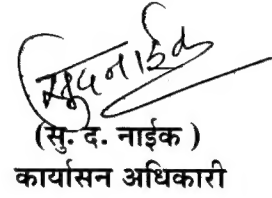 सुदनाईक
(सु. द. नाईक )
कार्यासन अधिकारी